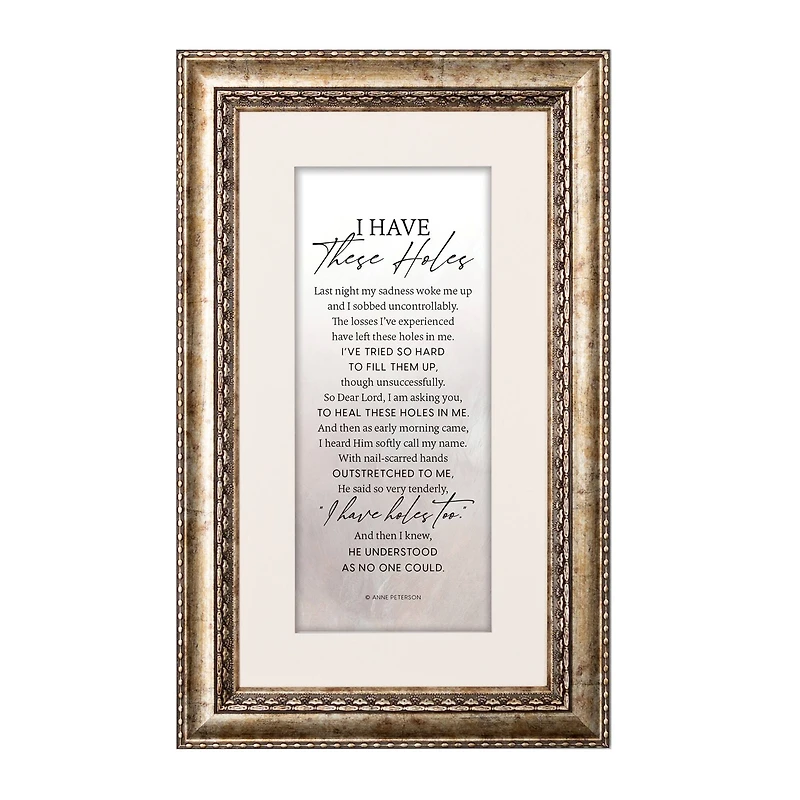 I HAVE
These Holes
Last night my sadness woke me up
and I sobbed uncontrollably.
The losses I've experienced
have left these holes in me.
I'VE TRIED SO HARD
TO FILL THEM UP,
though unsuccessfully.
So Dear Lord, I am asking you,
TO HEAL THESE HOLES IN ME.
And then as early morning came,
I heard Him softly call my name.
With nail-scarred hands
OUTSTRETCHED TO ME,
He said so very tenderly,
"I have holes too."
And then I knew,
HE UNDERSTOOD
AS NO ONE COULD.
© ANNE PETERSON